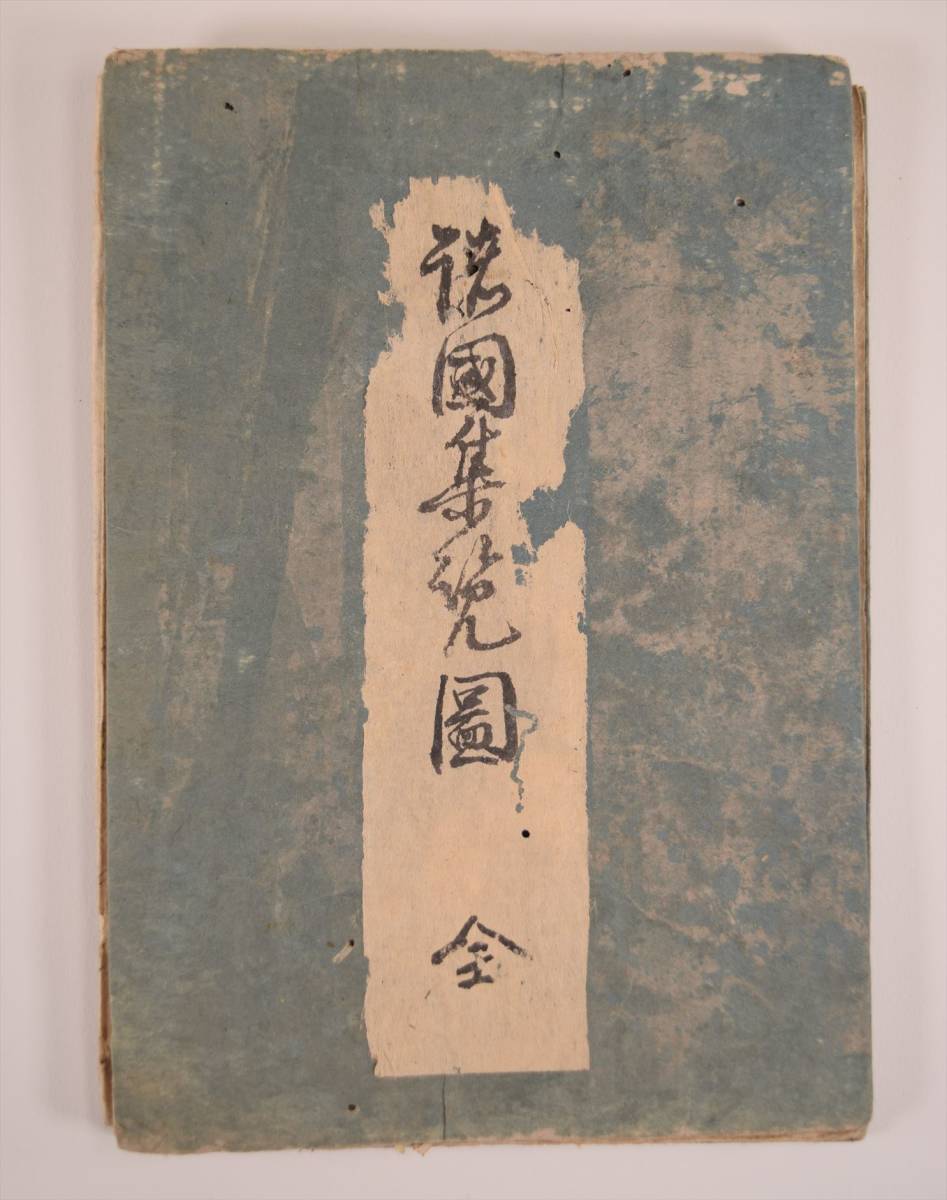 諸國集覽圖 全